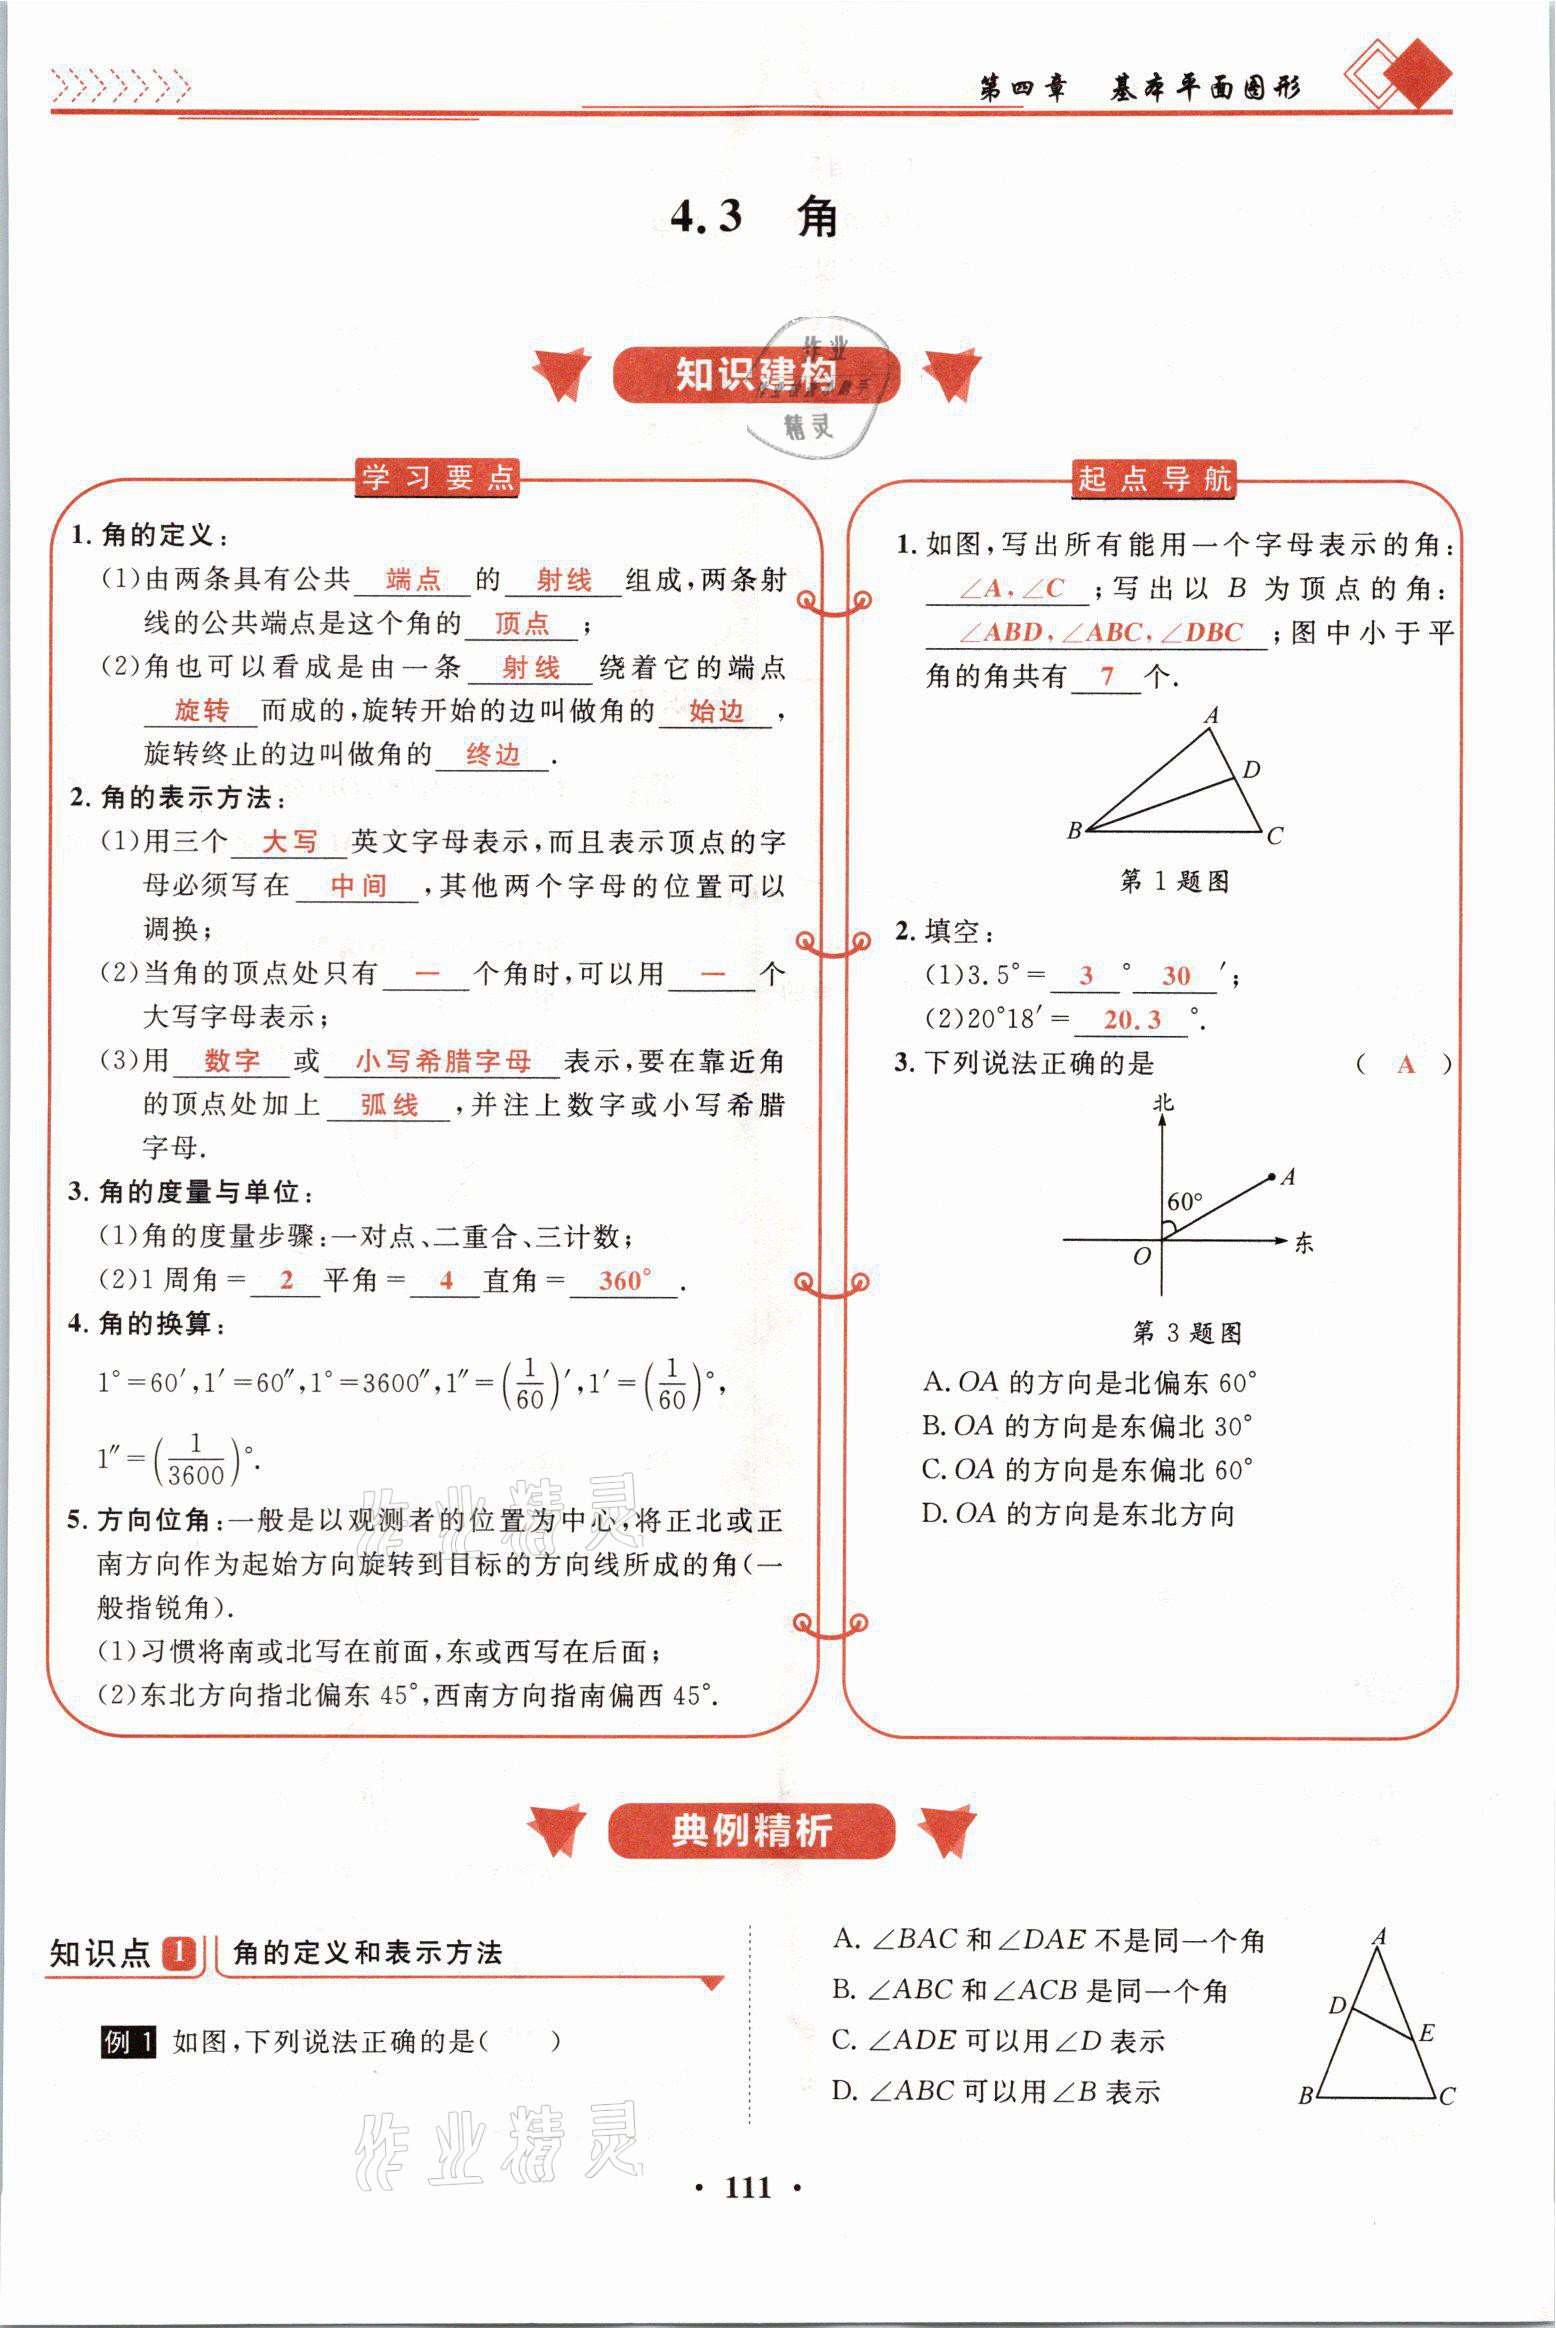 第四章 基本平面图形
4.3 角
知识建构
作业
精灵
学习要点
1. 角的定义:
(1)由两条具有公共 端点 的 射线 组成,两条射
线的公共端点是这个角的 顶点 ;
(2)角也可以看成是由一条 射线 绕着它的端点
旋转 而成的,旋转开始的边叫做角的 始边 ,
旋转终止的边叫做角的 终边 .
2. 角的表示方法:
(1)用三个 大写 英文字母表示,而且表示顶点的字
母必须写在 中间 ,其他两个字母的位置可以
调换;
(2)当角的顶点处只有 一 个角时,可以用 一 个
大写字母表示;
(3)用 数字 或 小写希腊字母 表示,要在靠近角
的顶点处加上 弧线 ,并注上数字或小写希腊
字母.
3. 角的度量与单位:
(1)角的度量步骤:一对点、二重合、三计数;
(2)1周角= 2 平角= 4 直角= 360° .
4. 角的换算:
1°=60′,1′=60″,1°=3600″,1″=(1/60)′,1′=(1/60)°,
1″=(1/3600)°.
5. 方向位角:一般是以观测者的位置为中心,将正北或正
南方向作为起始方向旋转到目标的方向线所成的角(一
般指锐角).
(1)习惯将南或北写在前面,东或西写在后面;
(2)东北方向指北偏东45°,西南方向指南偏西45°.
作业精灵
起点导航
1. 如图,写出所有能用一个字母表示的角:
∠A,∠C ;写出以 B 为顶点的角:
∠ABD,∠ABC,∠DBC ;图中小于平
角的角共有 7 个.
A
D
B
C
第1题图
2. 填空:
(1)3.5°= 3 ° 30 ′;
(2)20°18′= 20.3 °.
3. 下列说法正确的是 ( A )
北
A
60°
O
东
第3题图
A. OA 的方向是北偏东60°
B. OA 的方向是东偏北30°
C. OA 的方向是东偏北60°
D. OA 的方向是东北方向
典例精析
知识点 1 角的定义和表示方法
例1 如图,下列说法正确的是( )
作业精灵
A. ∠BAC 和∠DAE 不是同一个角
B. ∠ABC 和∠ACB 是同一个角
C. ∠ADE 可以用∠D 表示
D. ∠ABC 可以用∠B 表示
A
D
E
B
C
• 111 •